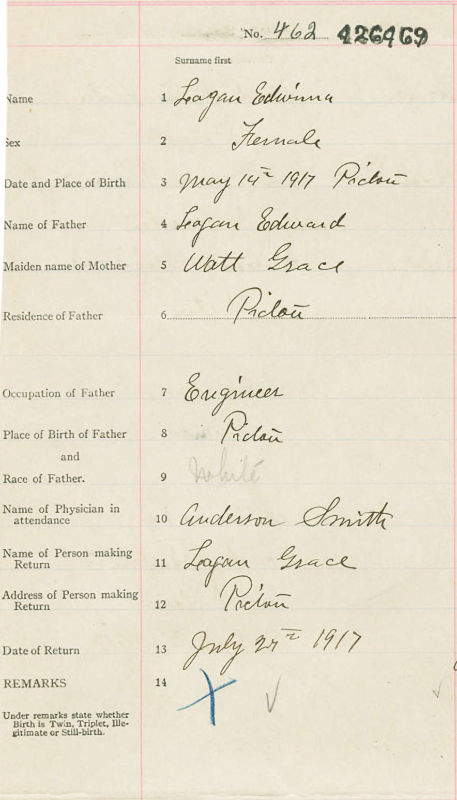 No. 462 426469
Surname first
Name 1 Logan Edwinna
Sex 2 Female
Date and Place of Birth 3 May 14th 1917 Picton
Name of Father 4 Logan Edward
Maiden name of Mother 5 Watt Grace
Residence of Father 6 Picton
Occupation of Father 7 Engineer
Place of Birth of Father 8 Picton
and
Race of Father. 9 White
Name of Physician in
attendance 10 Anderson Smith
Name of Person making
Return 11 Logan Grace
Address of Person making
Return 12 Picton
Date of Return 13 July 1917
REMARKS 14
Under remarks state whether
Birth is Twin, Triplet, Ille-
gitimate or Still-birth.